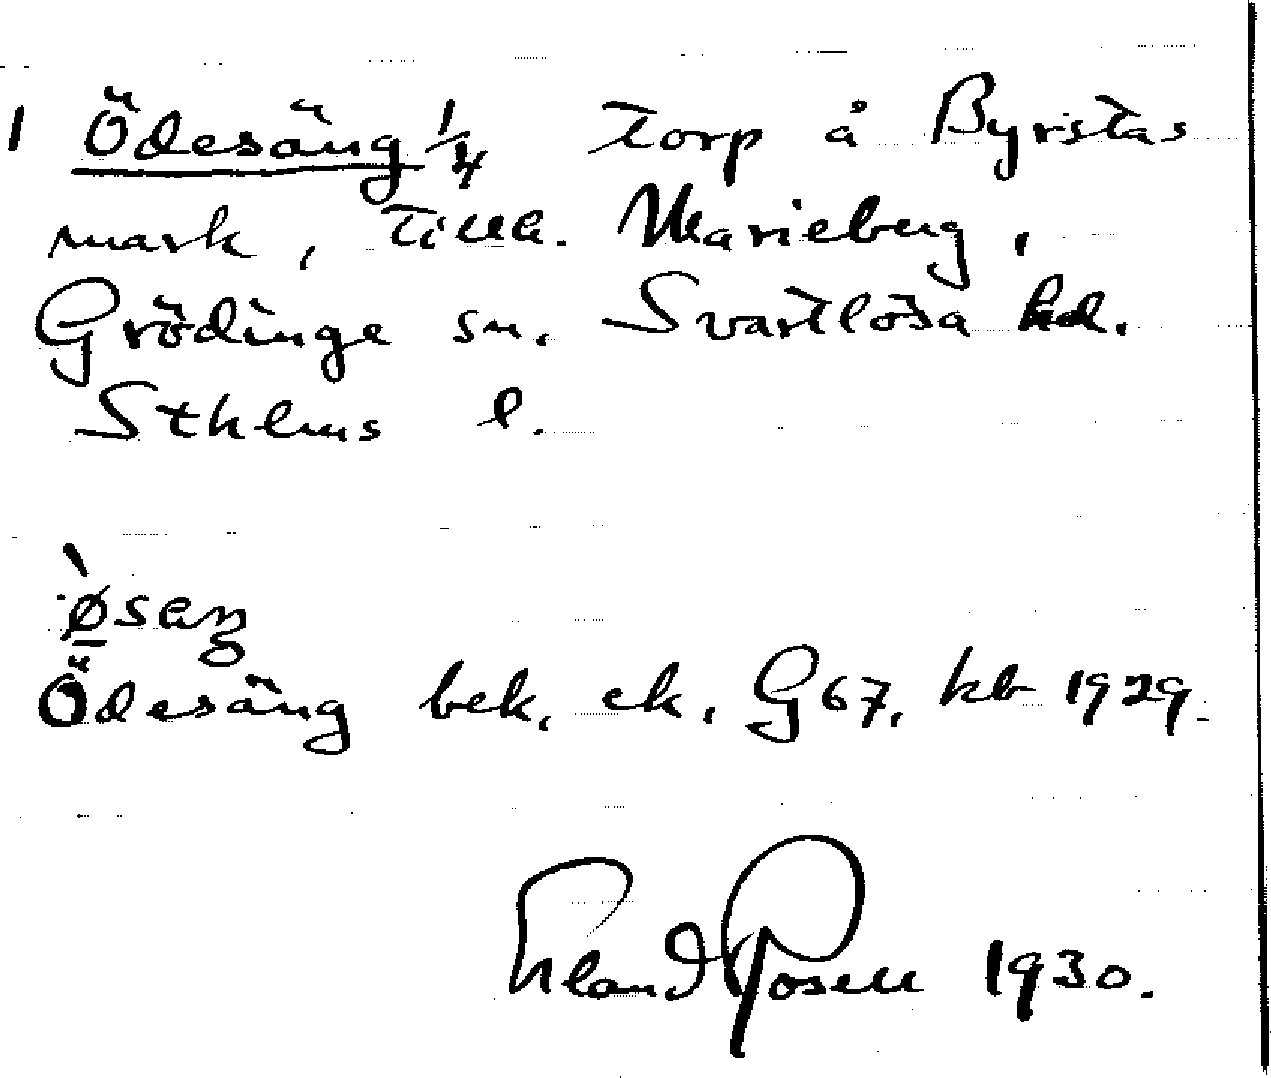 1 Ödesäng 1/4 torp å Byrstas
mark, tillh. Marieberg,
Grödinge sn. Svartlösa hd.
Sthlms l.
`øsaŋ
Ödesäng bek. ek. G67, kb 1929.
Erland Rosell 1930.